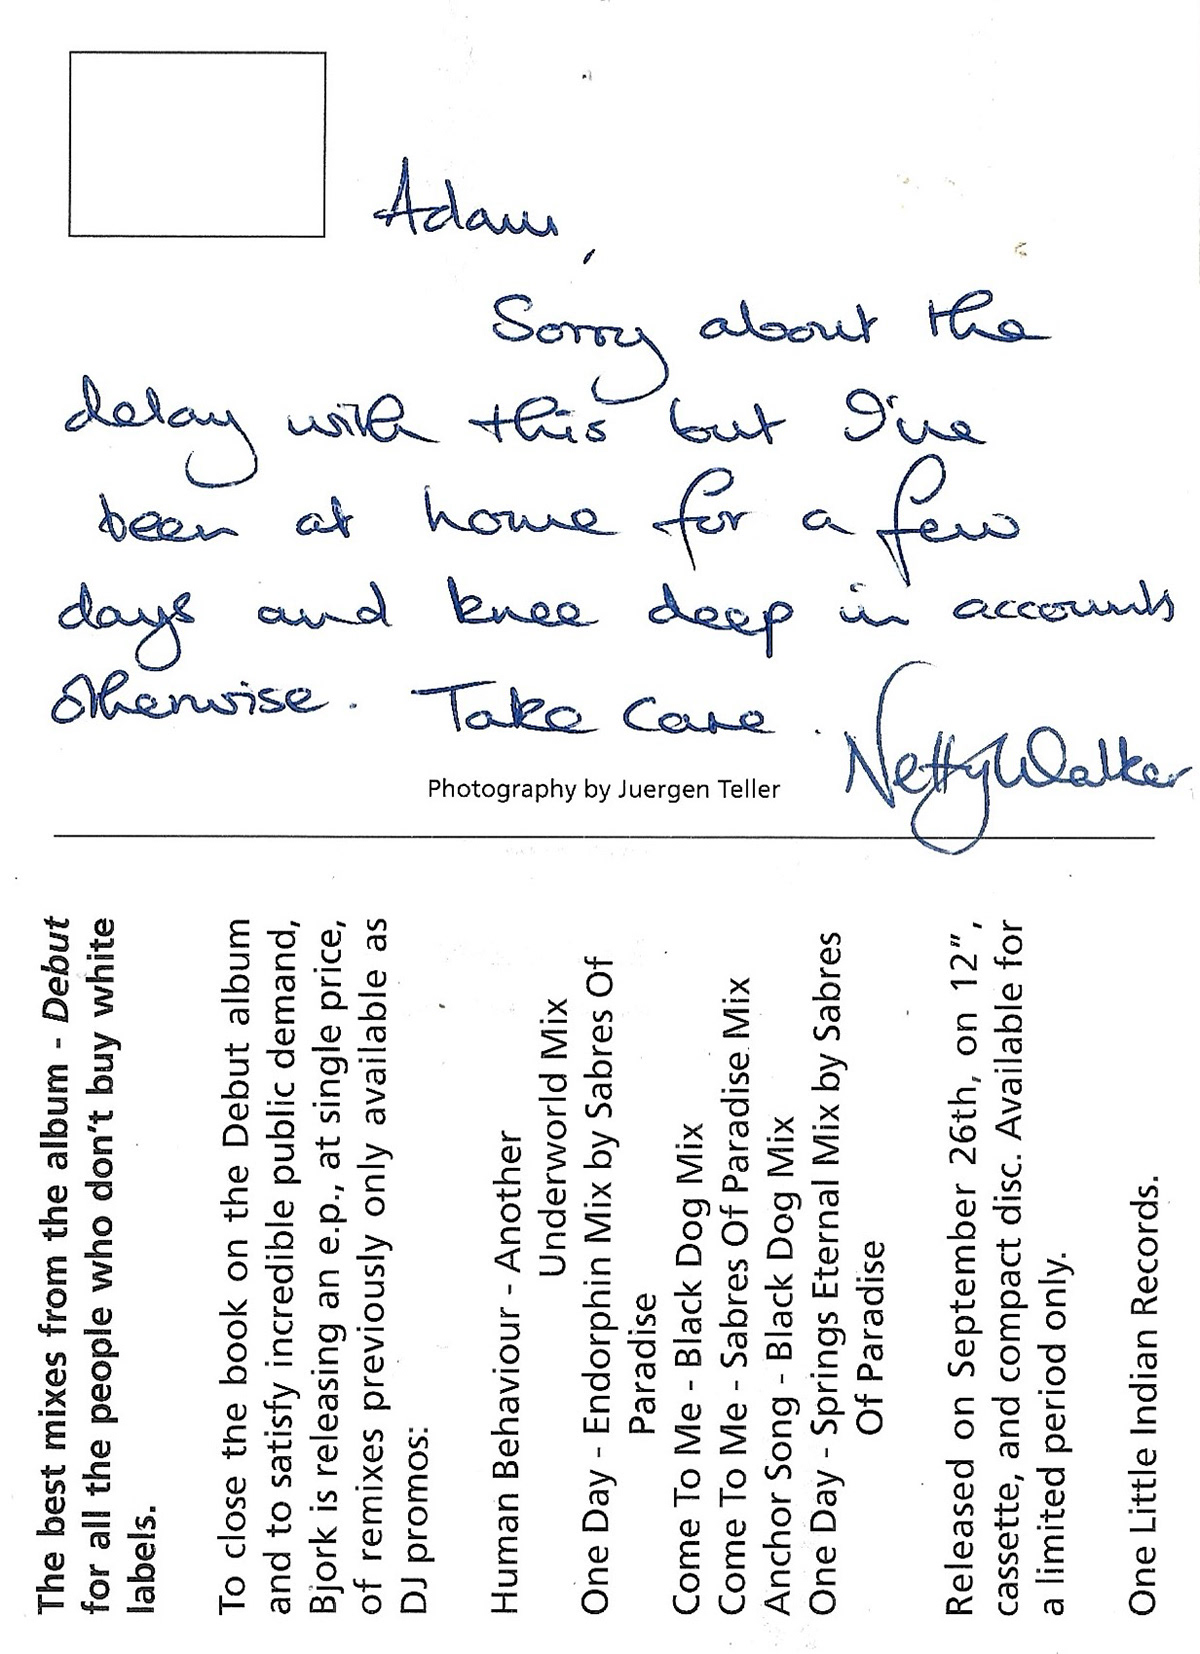 Adam,
Sorry about the
delay with this but I've
been at home for a few
days and knee deep in accounts
otherwise. Take care.
Netty Walker
Photography by Juergen Teller
The best mixes from the album - Debut
for all the people who don't buy white
labels.
To close the book on the Debut album
and to satisfy incredible public demand,
Bjork is releasing an e.p., at single price,
of remixes previously only available as
DJ promos:
Human Behaviour - Another
Underworld Mix
One Day - Endorphin Mix by Sabres Of
Paradise
Come To Me - Black Dog Mix
Come To Me - Sabres Of Paradise Mix
Anchor Song - Black Dog Mix
One Day - Springs Eternal Mix by Sabres
Of Paradise
Released on September 26th, on 12”,
cassette, and compact disc. Available for
a limited period only.
One Little Indian Records.